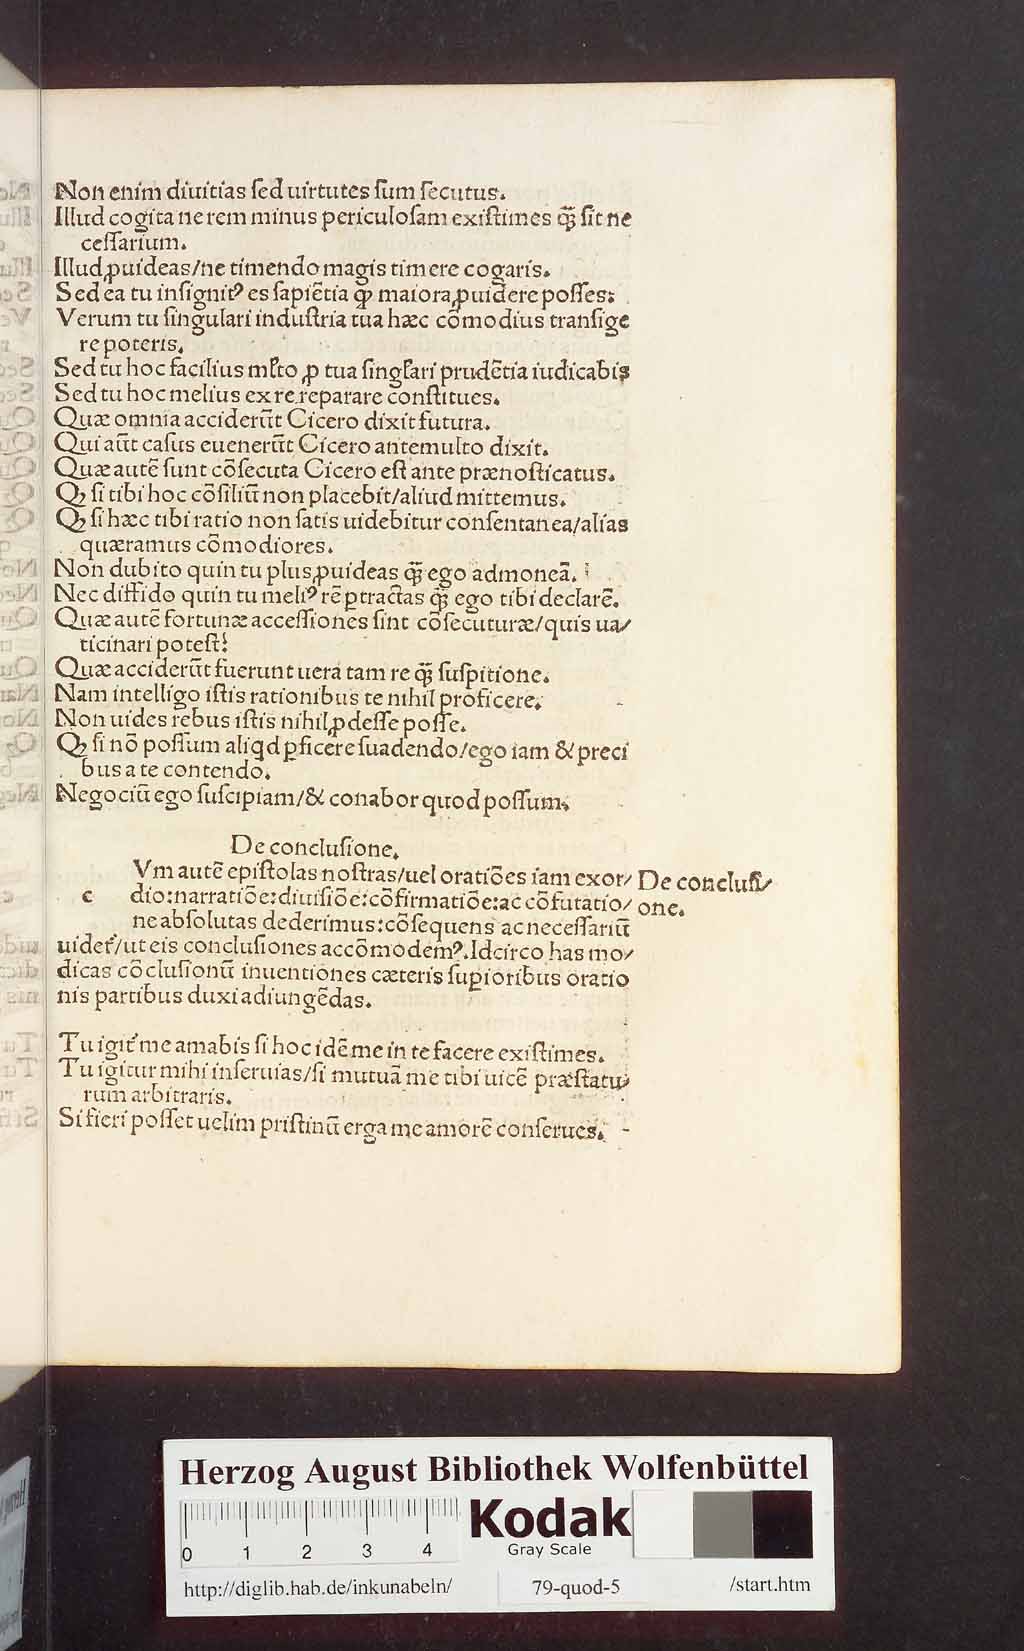 Non enim diuitias sed uirtutes sum secutus.
Illud cogita ne rem minus periculosam existimes q̃ sit ne
cessarium.
Illud ꝓuideas/ne timendo magis timere cogaris.
Sed ea tu insignitꝰ es sapiẽtia ꝙ maiora ꝓuidere posses:
Verum tu singulari industria tua hæc cõmodius transige
re poteris.
Sed tu hoc facilius ml̃to ꝓ tua singl̃ari prudẽtia iudicabis
Sed tu hoc melius ex re reparare constitues.
Quæ omnia acciderũt Cicero dixit futura.
Qui aũt casus euenerũt Cicero ante multo dixit.
Quæ autẽ sunt cõsecuta Cicero est ante prænosticatus.
Qꝫ si tibi hoc cõsiliũ non placebit/aliud mittemus.
Qꝫ si hæc tibi ratio non satis uidebitur consentanea/alias
quæramus cõmodiores.
Non dubito quin tu plus ꝓuideas q̃ ego admoneã.
Nec diffido quin tu meliꝰ rẽ ꝑtractas q̃ ego tibi declarẽ.
Quæ autẽ fortunæ accessiones sint cõsecuturæ/quis ua/
ticinari potest?
Quæ acciderũt fuerunt uera tam re q̃ suspitione.
Nam intelligo istis rationibus te nihil proficere.
Non uides rebus istis nihil ꝓdesse posse.
Qꝫ si nõ possum aliqd ꝑficere suadendo/ego iam & preci
bus a te contendo.
Negociũ ego suscipiam/& conabor quod possum.
De conclusione.
Vm autẽ epistolas nostras/uel oratiões iam exor/
c dio:narratiõe:diuisiõe:cõfirmatiõe:ac cõfutatio/
ne absolutas dederimus:cõsequens ac necessariũ
uidet̃/ut eis conclusiones accõmodemꝰ. Idcirco has mo/
dicas cõclusionũ inuentiones cæteris suꝑioribus oratio
nis partibus duxi adiungẽdas.
De conclusi/
one.
Tu igit̃ me amabis si hoc idẽ me in te facere existimes.
Tu igitur mihi inseruias/si mutuã me tibi uicẽ præstatu/
rum arbitraris.
Si fieri posset uelim pristinũ erga me amorẽ conserues.
Herzog August Bibliothek Wolfenbüttel
0 1 2 3 4
Kodak
Gray Scale
http://diglib.hab.de/inkunabeln/ 79-quod-5 /start.htm